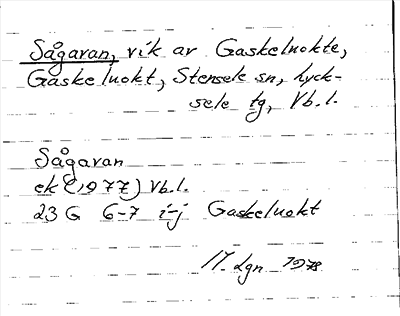 Sågavan, vik av Gaskeluokte,
Gaskeluokt, Stensele sn, Lyck-
sele tg, Vb.l.
Sågavan
ek (1977) Vb.l.
23 G 6-7 i-j Gaskeluokt
17. Lgn 1978